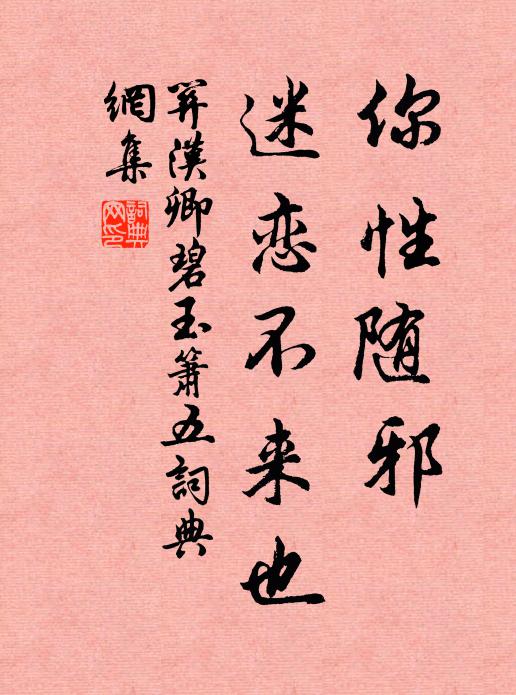 你性随邪
迷恋不来也
关漢卿碧玉箫五詞典
網集
詞典
网印